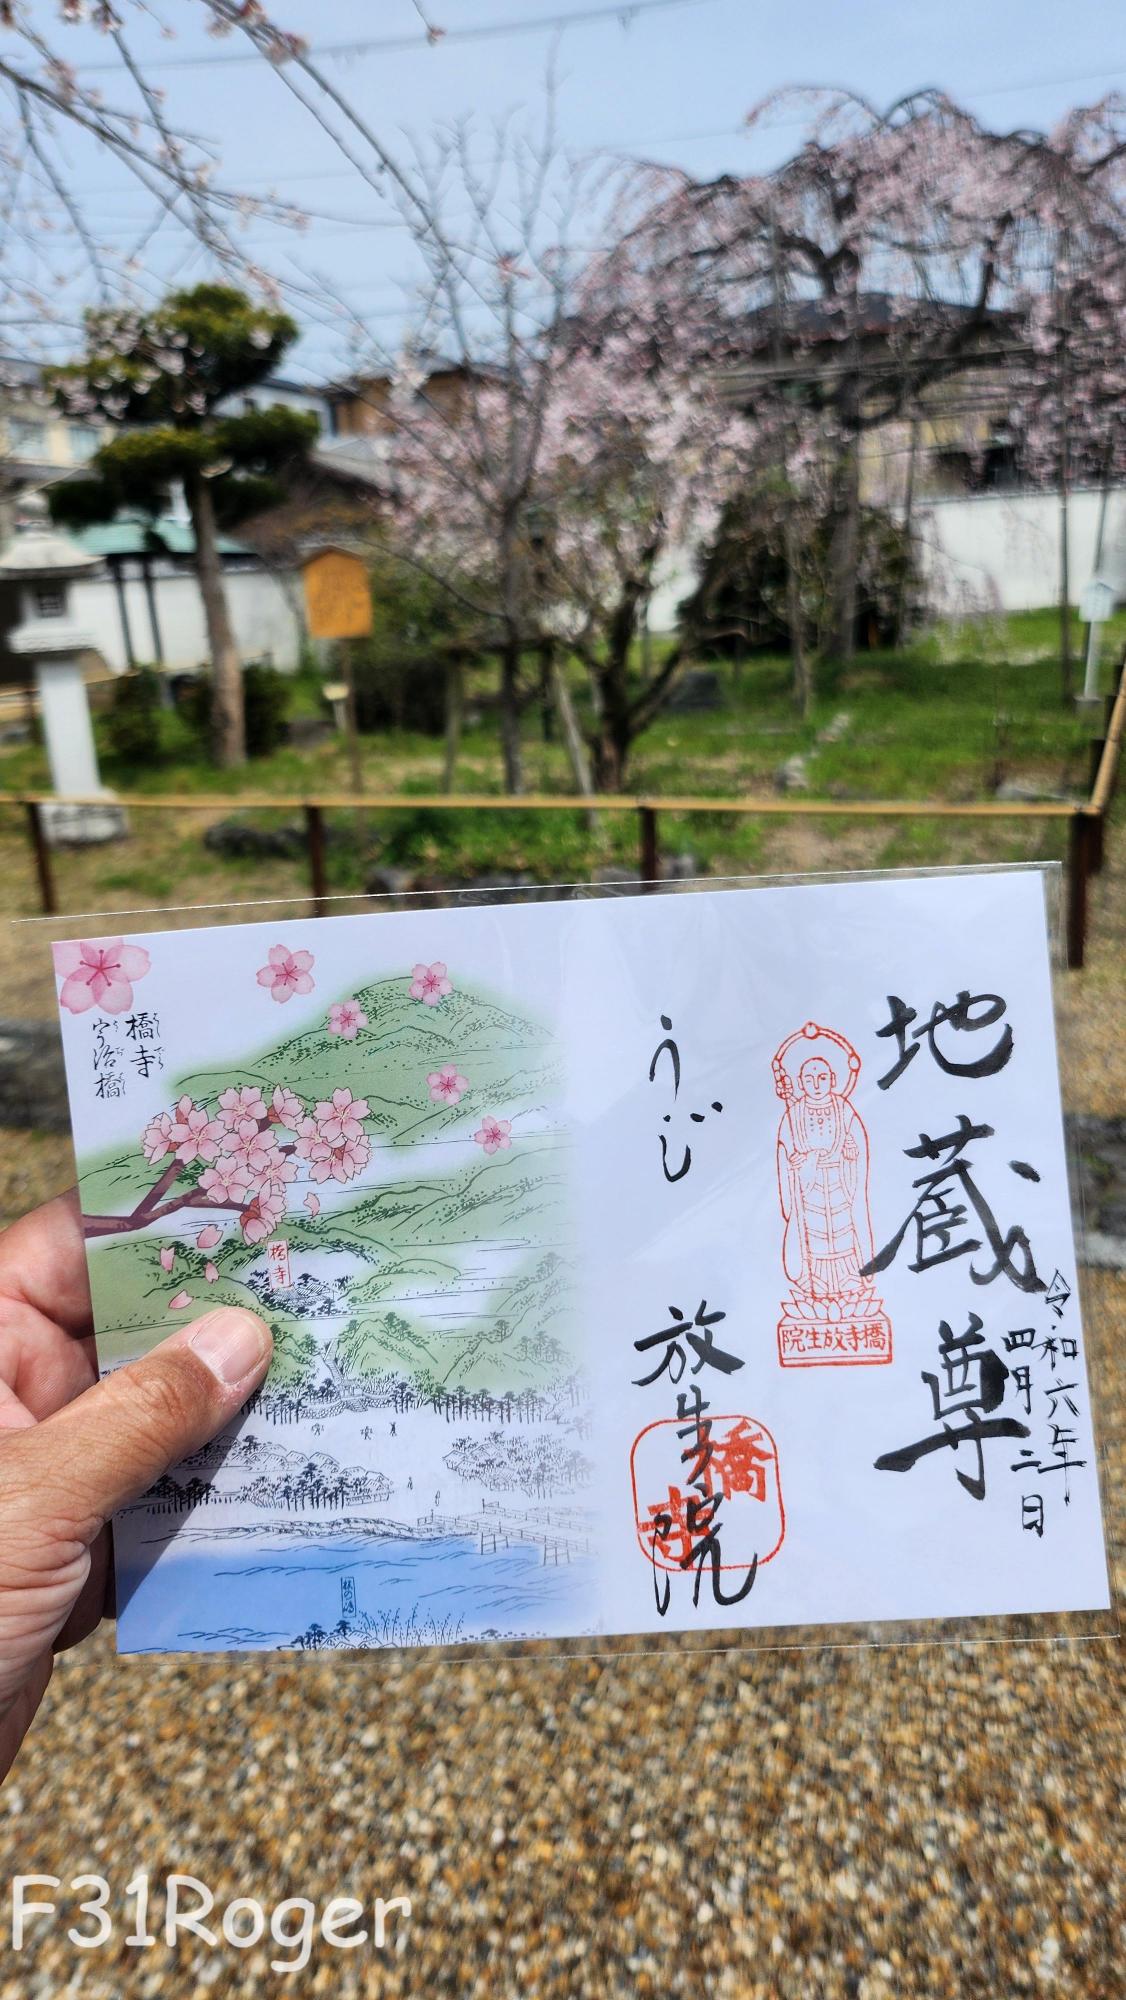 地蔵尊
令和六年
四月二日
橋寺放生院
うじ
放生院
橋寺
橋寺
宇治橋
橋寺
F31Roger